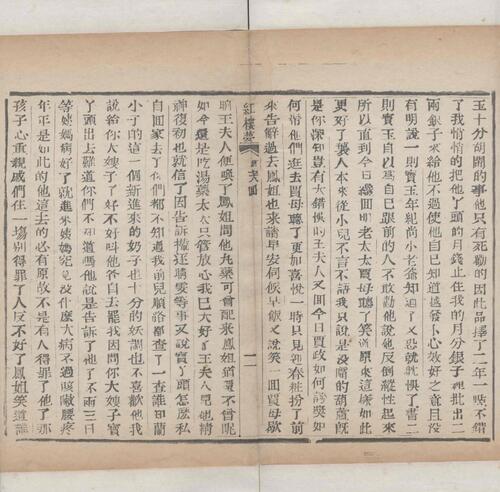 玉十分胡鬧的事他只有死勸的因此品擇了二年一點不錯
了我悄悄的把他丫頭的月錢止住我的月分銀子裡批出二
兩銀子來給他不過使他自己知道越發小心效好之意且沒
有明說一則寶玉年紀尚小老爺知道了又恐說就悞了書二
則寶玉自以爲自己跟前的人不敢勸他說他反倒縱性起來
所以直到今日纔回明老太太賈母聽了笑道原來這樣如此
更好了襲人本來從小兒不言不語我只說是沒嘴的葫蘆旣
是你深知豈有大錯悞的王夫人又回今日賈政如何誇獎如
何帶他們逛去賈母聽了更加喜悅一時只見迎春粧扮了前
來告辭過去鳳姐也來請早安伺候早飯又說笑一回賈母歇
紅樓夢
晌王夫人便喚了鳳姐問他丸藥可曾配來鳳姐道還不曾呢
如今還是吃湯藥太太只管放心我已大好了王夫人見他精
神復初也就信了因告訴攆逐晴雯等事又說寶丫頭怎麼私
自回家去了你們都不知道我前兒順路都查了一查誰知蘭
小子的這一個新進來的奶子也十分的妖調也不喜歡他我
說給你大嫂子了好不好叫他各自去罷我因問你大嫂子寶
丫頭出去難道你們不知道嗎他說是告訴了他了不兩三日
等姨媽病好了就進來姨媽究竟沒什麼大病不過咳嗽腰疼
年年是如此的他這去的必有原故不是有人得罪了他了那
孩子心重親戚們住一塲別得罪了人反不好了鳳姐笑道誰